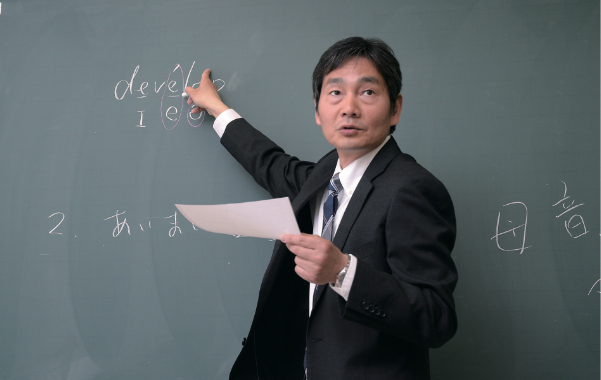 devélop
I e
2. あいま
母音